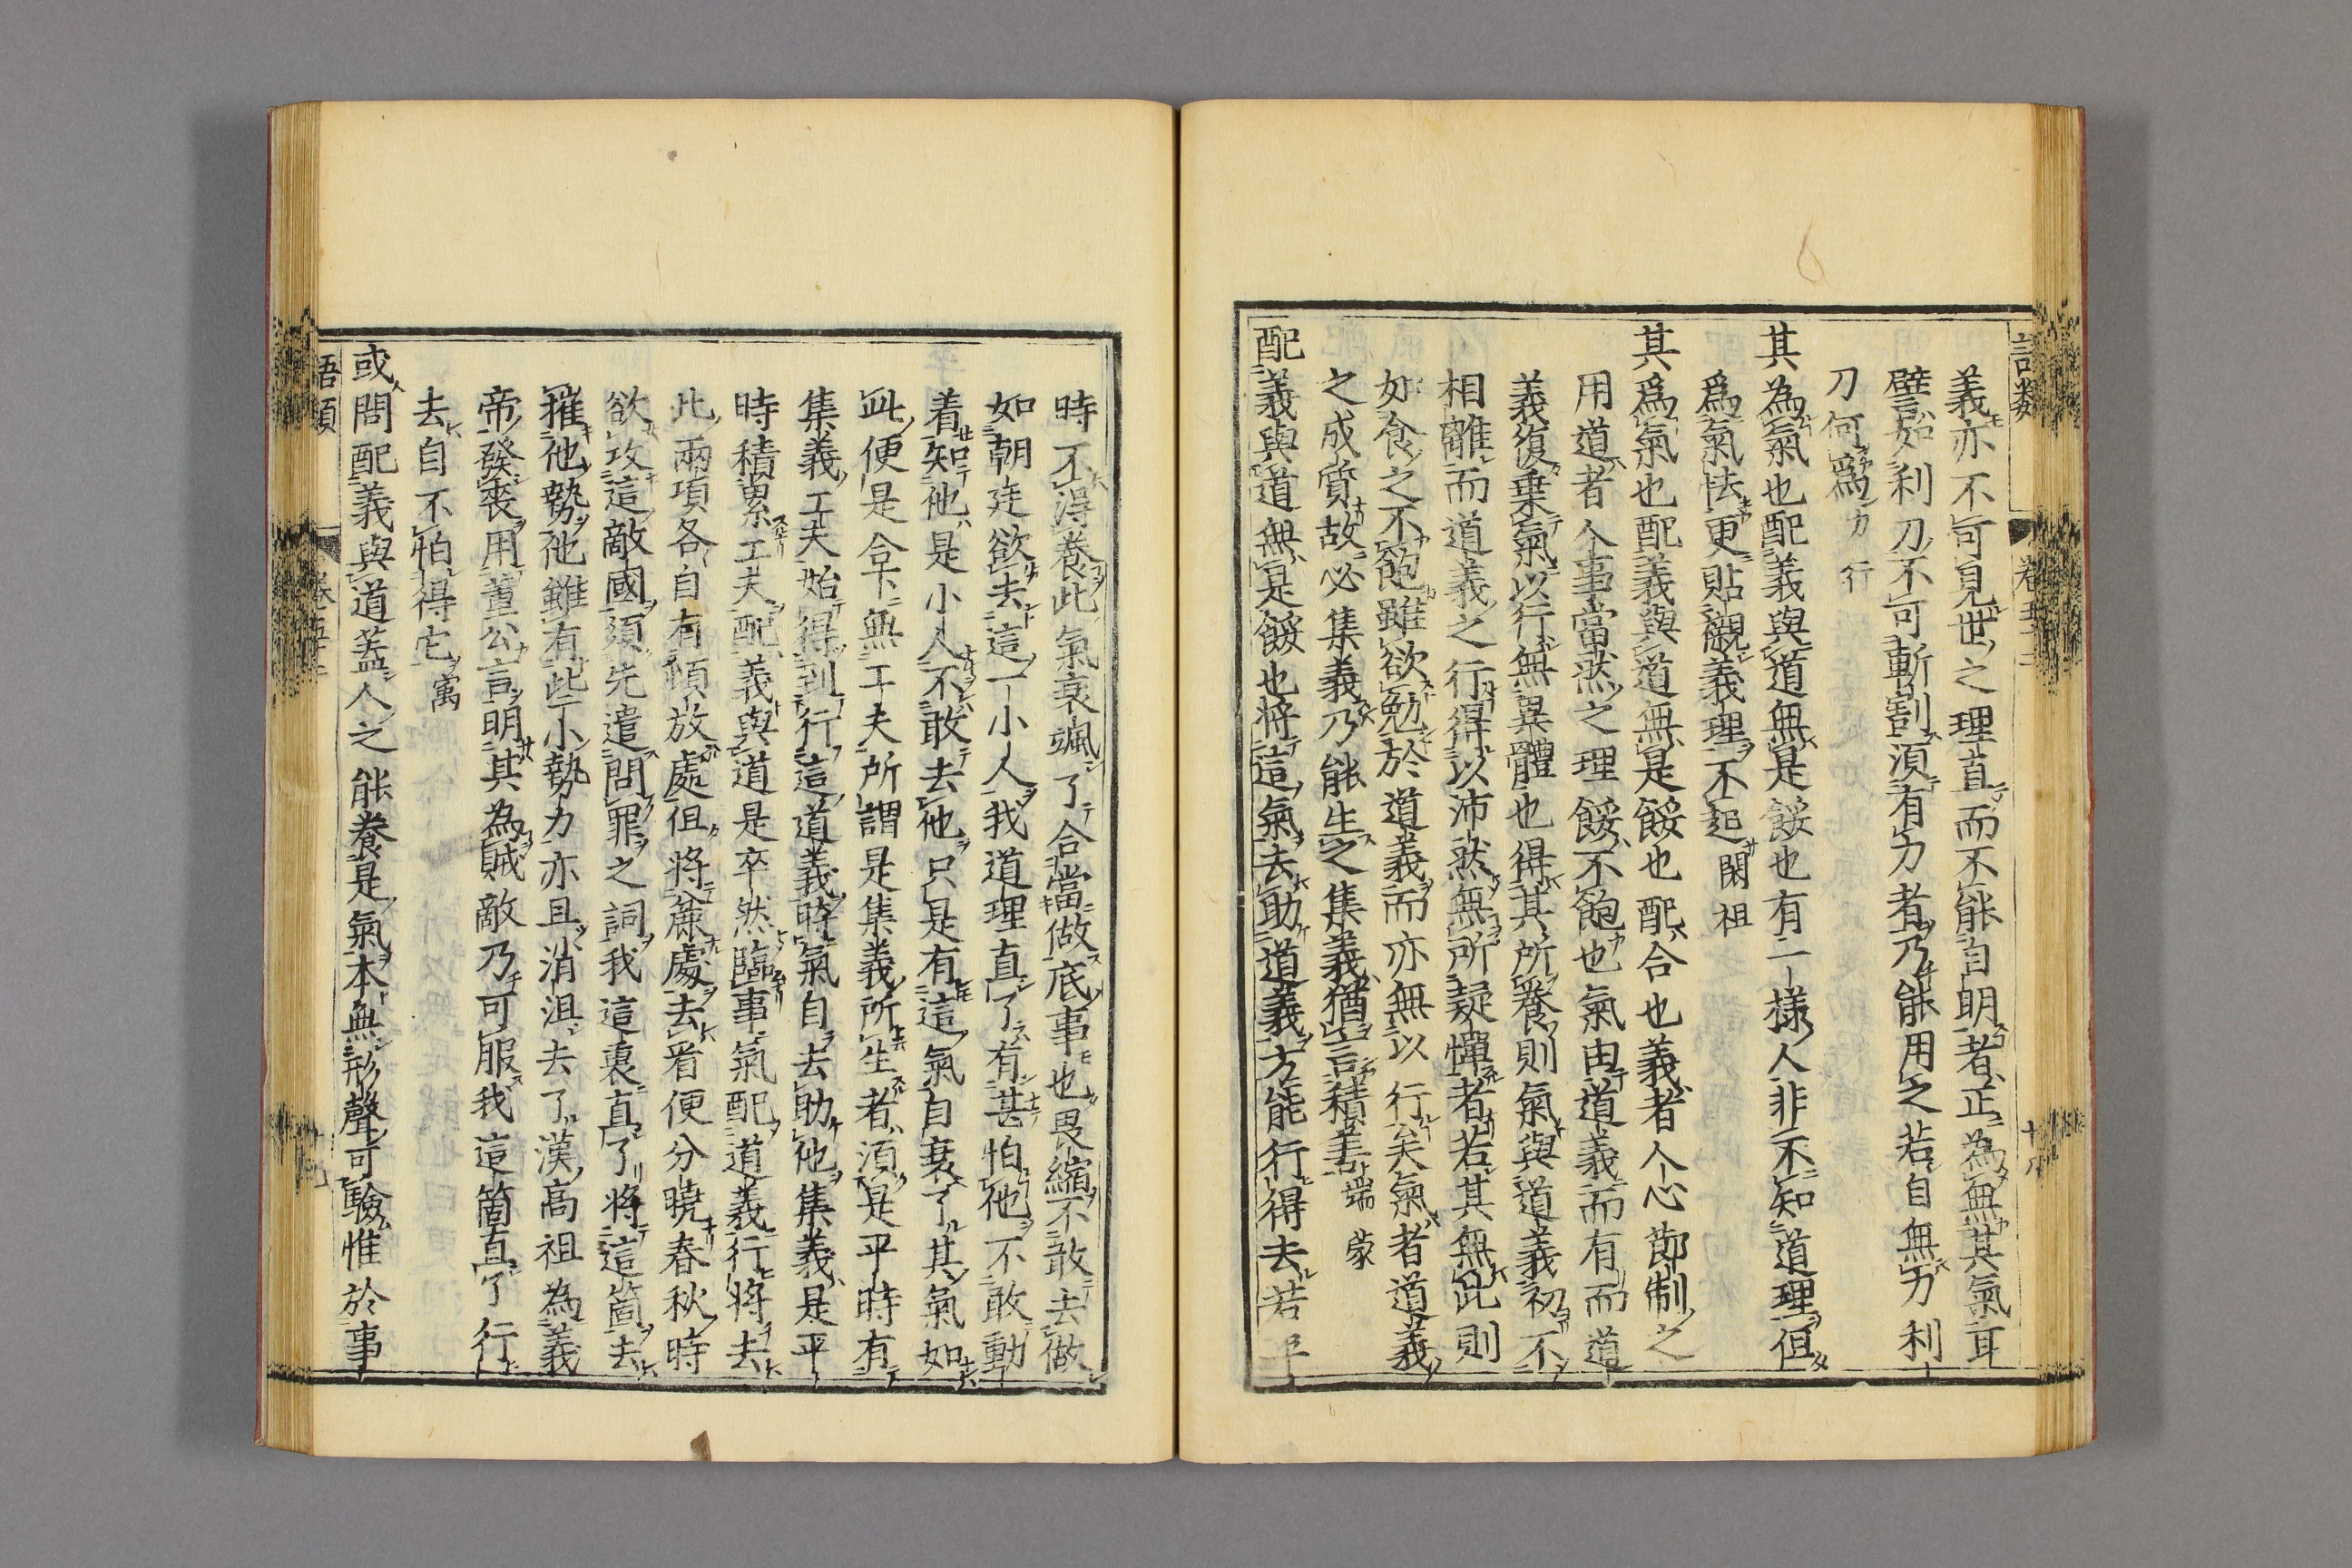 語類 卷五十二 十八
義亦不可見世之理直而不能自明者正為無其氣耳
譬如利刀不可斬割須有力者乃能用之若自無力利
刀何爲力行
其為氣也配義與道無是餒也有一樣人非不知道理但
爲氣怯更貼襯義理不起閎祖
其爲氣也配義與道無是餒也配合也義者人心節制之
用道者人事當然之理餒不飽也氣由道義而有而道
義復乗氣以行無異體也得其所養則氣與道義初不
相離而道義之行得以沛然無所疑憚者若其無此則
如食之不飽雖欲勉於道義而亦無以行矣氣者道義
之成質故必集義乃能生之集義猶言積善端蒙
配義與道無是餒也將這氣去助道義方能行得去若平
時不淂養此氣衰颯了合當做底事也畏縮不敢去做
如朝廷欲去這一小人我道理直了有甚怕他不敢動
着知他是小人不敢去他只是有這氣自衰了其氣如
此便是合下無工夫所謂是集義所生者須是平時有
集義工夫始得到行這道義時氣自去助他集義是平
時積累工夫配義與道是卒然臨事氣配道義行將去
此兩項各自有頓放處但將粗處去看便分曉春秋時
欲攻這敵國須先遣問罪之詞我這裏直了將這箇去
摧他勢他雖有些小勢力亦且消沮去了漢高祖為義
帝發喪用董公言明其為賊敵乃可服我這箇直了行
去自不怕得它㝢
或問配義與道蓋人之能養是氣本無形聲可驗惟於事
語類 卷五十二 十九